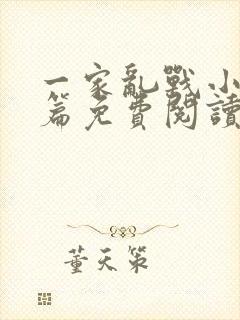 一家亂戰小
篇免費閱讀
董天策